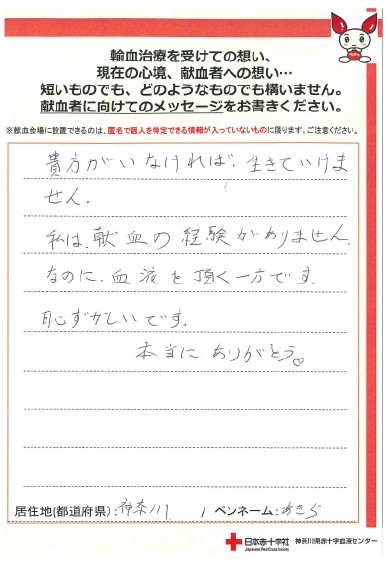 輸血治療を受けての想い、
現在の心境、献血者への想い…
短いものでも、どのようなものでも構いません。
献血者に向けてのメッセージをお書きください。
※献血会場に設置できるのは、匿名で個人を特定できる情報が入っていないものに限ります。ご注意ください。
貴方がいなければ、生きていけま
せん。
私は、献血の経験がありません。
なのに、血液を頂く一方です。
恥ずかしいです。
本当にありがとう。
居住地(都道府県):神奈川 / ペンネーム:あきら
日本赤十字社 神奈川県赤十字血液センター
Japanese Red Cross Society